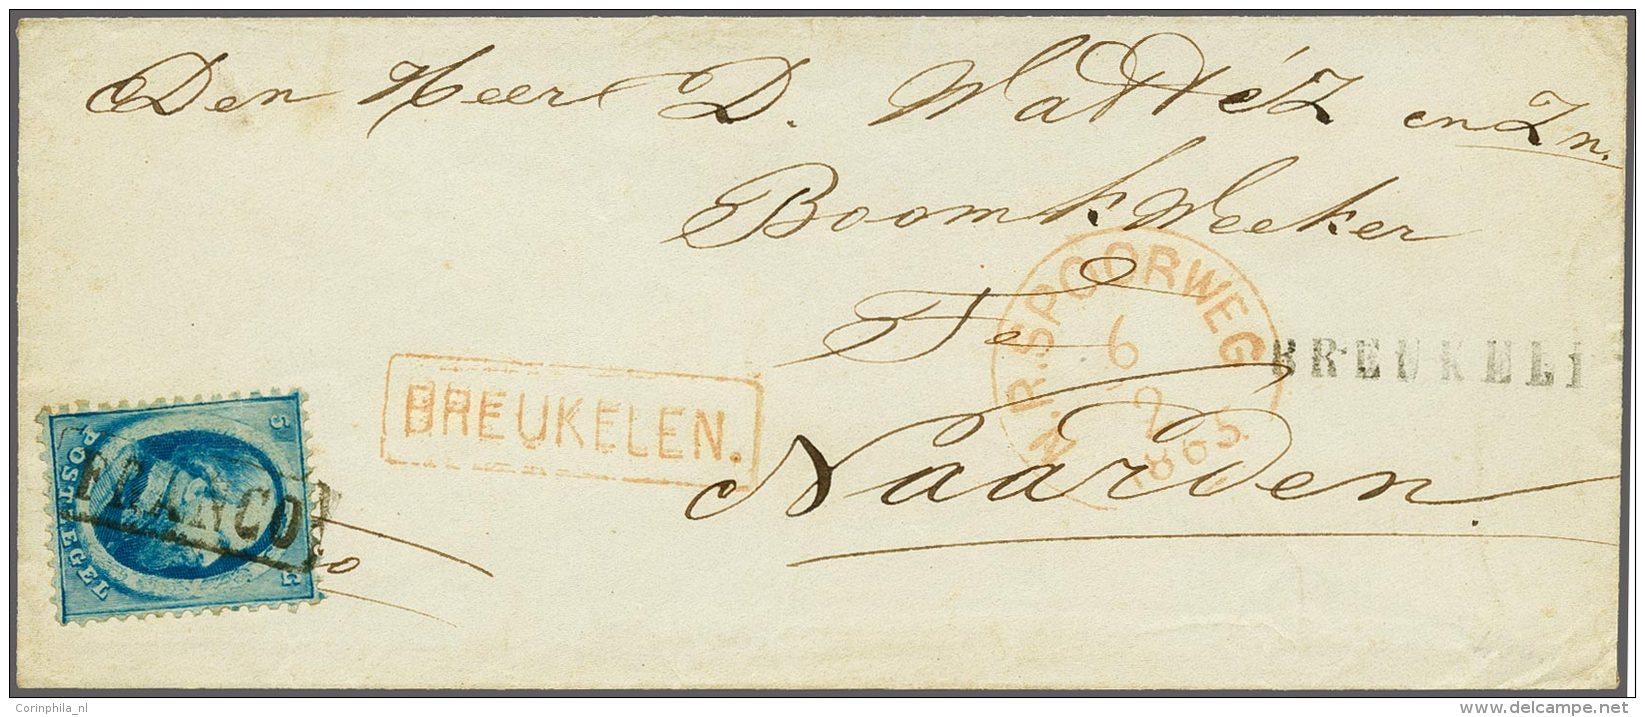 Den Heer D. Wattéz en Zn.
Boomkweeker
Te
Naarden.
N.R.SPOORWEG
6
2
1865
BREUKELEN.
BREUKELE
5 C
POSTZEGEL
FRANCO
Corinphila_nl
www.delcampe.net